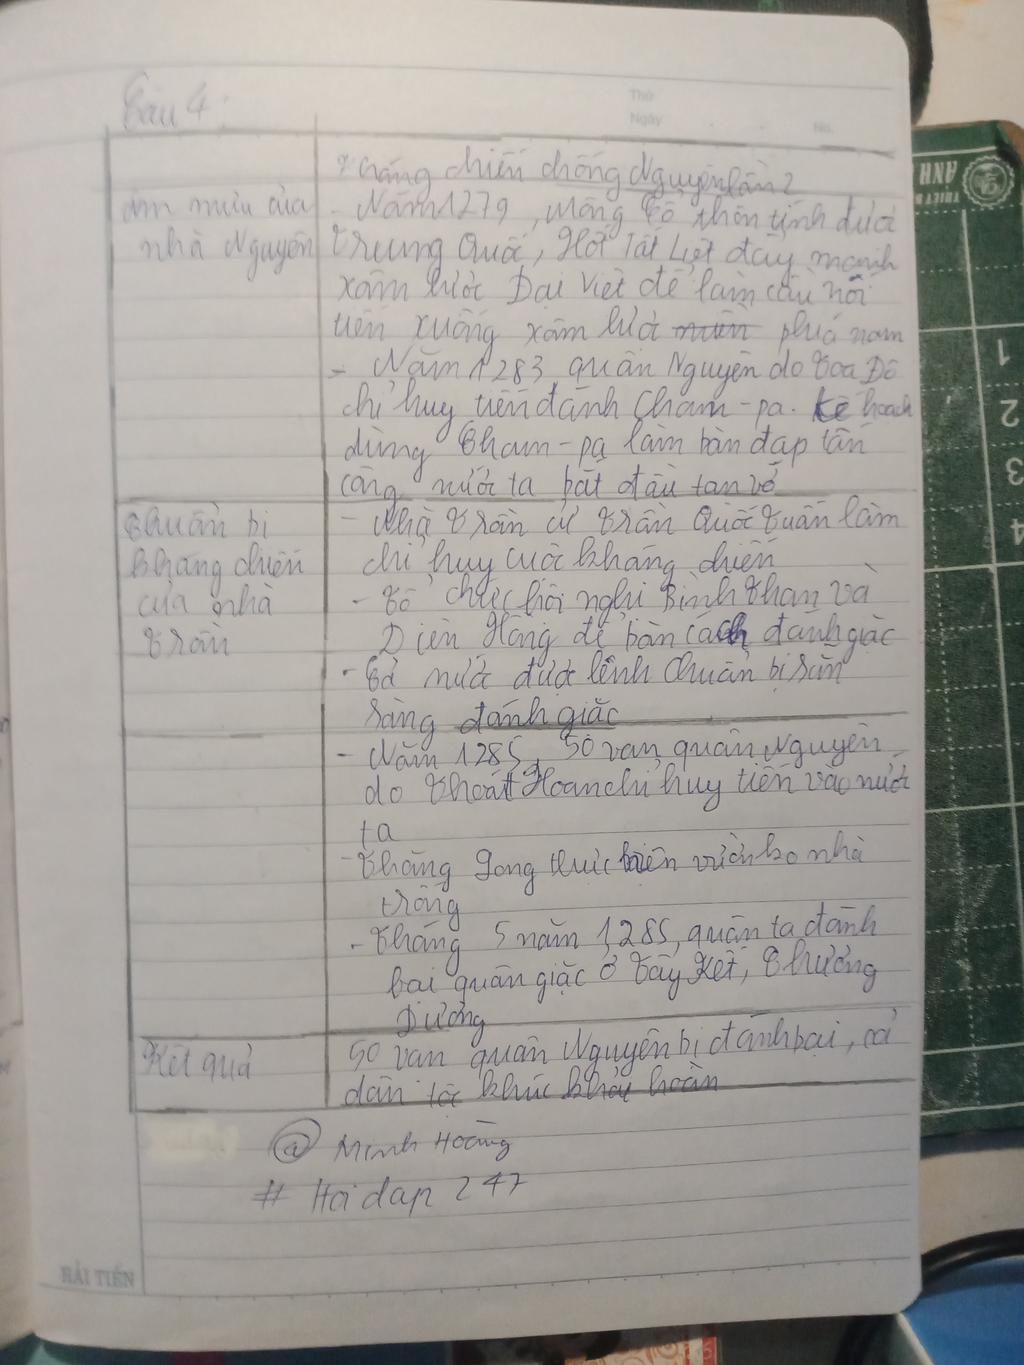 Câu 4:
Thứ
Ngày
No.
Kháng chiến chống Nguyên lần 2
Âm mưu của
nhà Nguyên
- Năm 1279, Mông Cổ thôn tính được
Trung Quốc, Hốt Tất Liệt đẩy mạnh
xâm lược Đại Việt để làm cầu nối
tiến xuống xâm lược miền phía nam
- Năm 1283 quân Nguyên do Toa Đô
chỉ huy tiến đánh Cham-pa. Kế hoạch
dùng Cham-pa làm bàn đạp tấn
công nước ta bắt đầu tan vỡ
Chuẩn bị
kháng chiến
của nhà
Trần
- Nhà Trần cử Trần Quốc Tuấn làm
chỉ huy cuộc kháng chiến
- Tổ chức hội nghị Bình Than và
Diên Hồng để bàn cách đánh giặc
- Cả nước được lệnh chuẩn bị sẵn
sàng đánh giặc
- Năm 1285, 50 vạn quân Nguyên
do Thoát Hoan chỉ huy tiến vào nước
ta
- Thăng Long thực hiện vườn ko nhà
trống
- Tháng 5 năm 1285, quân ta đánh
bại quân giặc ở Tây Kết, Chương
Dương
Kết quả
50 vạn quân Nguyên bị đánh bại, cả
dân tộc khúc khải hoàn
@ Minh Hoàng
# Hoi dap 247
HẢI TIẾN
THIẾT B
ANH
1
2
3
4